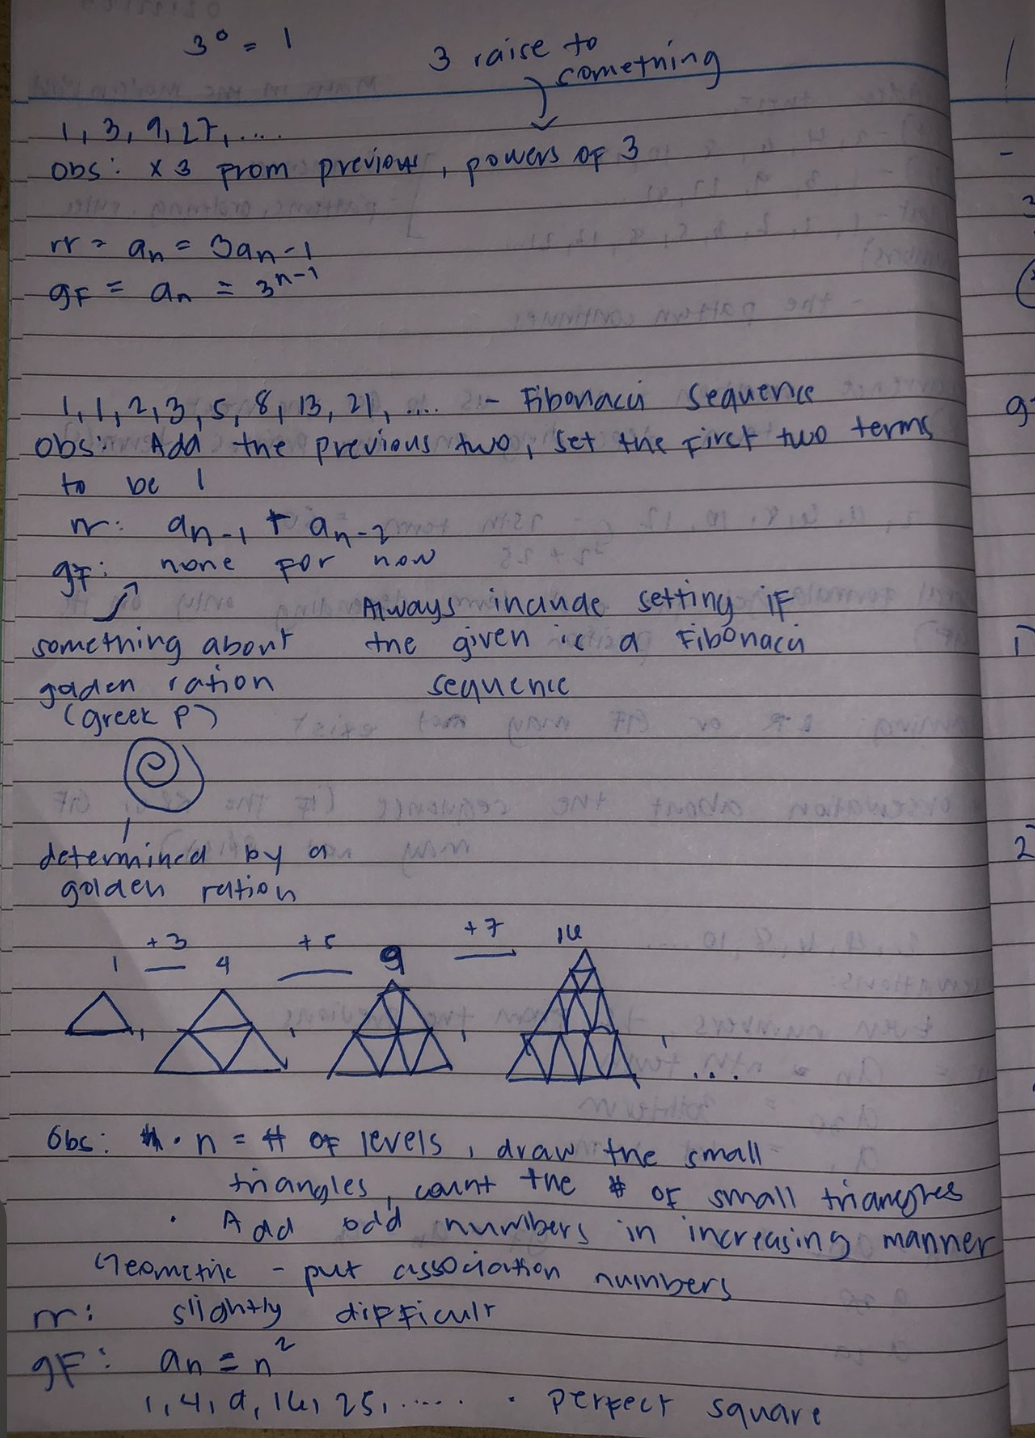 3⁰ = 1
3 raise to
something
1, 3, 9, 27, ....
obs: x 3 from previous, powers of 3
rr = aₙ = 3aₙ-1
gF = aₙ = 3ⁿ⁻¹
1, 1, 2, 3, 5, 8, 13, 21, .... - Fibonacci sequence
obs: Add the previous two, set the First two terms
to be 1
rr: aₙ₋₁ + aₙ₋₂
gF: none for now
something about
golden ration
(Greek P)
Always include setting iF
the given is a Fibonacci
sequence
determined by a
golden ration
+3 +5 +7
1 4 9 16
, , , , ...
Obs: · n = # of levels, draw the small
triangles, count the # of small triangles
· Add odd numbers in increasing manner
Geometric - put association numbers
rr: slightly difficult
gF: aₙ = n²
1, 4, 9, 16, 25, ..... · perfect square